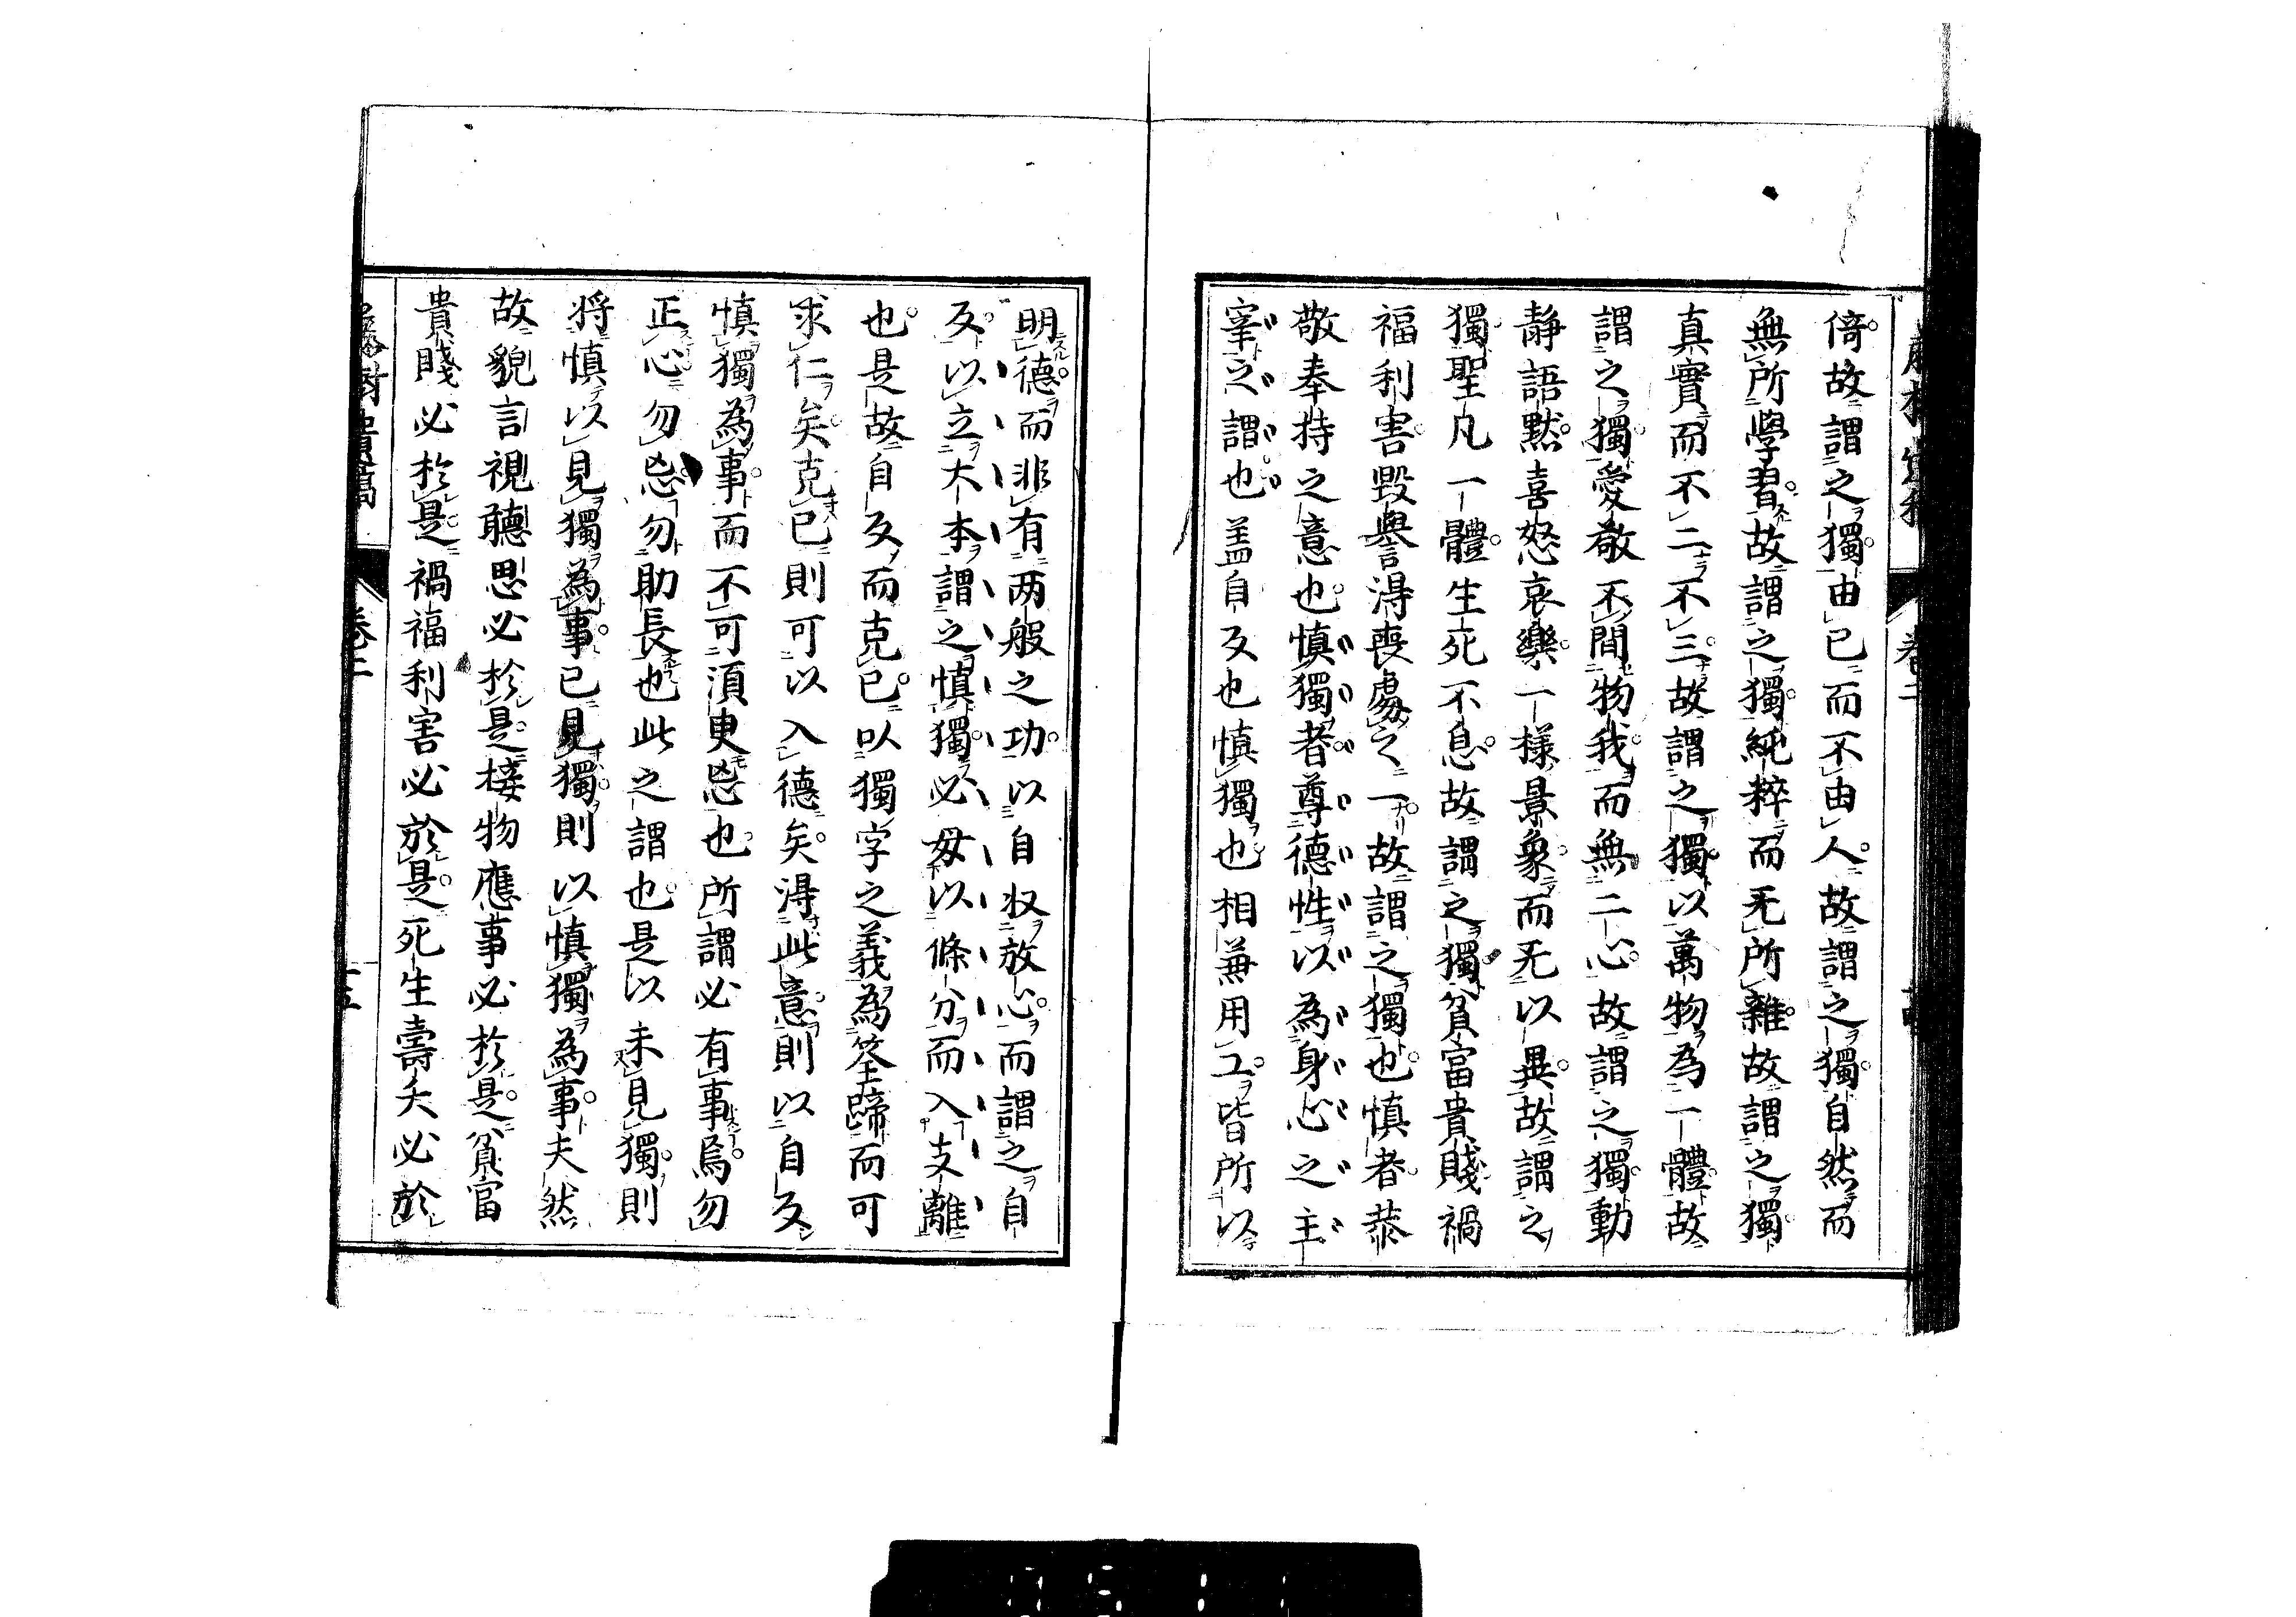 倚故謂之獨由己而不由人故謂之獨自然而
無所學習故謂之獨純粹而无所雜故謂之獨
真實而不二不三故謂之獨以萬物為一體故
謂之獨愛敬不間物我而無二心故謂之獨動
静語默喜怒哀樂一樣景象而无以異故謂之
獨聖凡一體生死不息故謂之獨貧富貴賤禍
福利害毀譽得喪處之一故謂之獨也慎者恭
敬奉持之意也慎獨者尊德性以為身心之主
宰之謂也盖自反也慎獨也相兼用工皆所以
明德而非有两般之功以自収放心而謂之自
反以立大本謂之慎獨必毋以條分而入支離
也是故自反而克己以獨字之義為筌蹄而可
求仁矣克己則可以入德矣得此意則以自反
慎獨為事而不可須臾忘也所謂必有事焉勿
正心勿忘勿助長也此之謂也是以未見獨則
将慎以見獨為事已見獨則以慎獨為事夫然
故貌言視聽思必於是接物應事必於是貧富
貴賤必於是禍福利害必於是死生壽夭必於
卷二